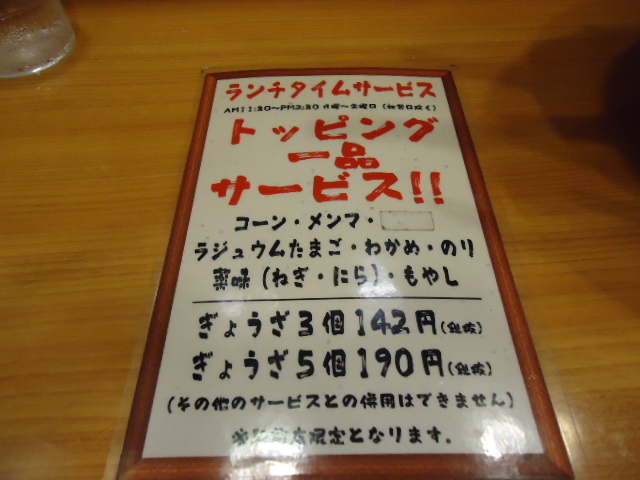 ランチタイムサービス
AM11:30〜PM2:30 月曜〜金曜日(祝祭日除く)
トッピング
一品
サービス!!
コーン・メンマ・
ラジュウムたまご・わかめ・のり
薬味(ねぎ・にら)・もやし
ぎょうざ3個142円(税抜)
ぎょうざ5個190円(税抜)
(その他のサービスとの併用はできません)
店限定となります。